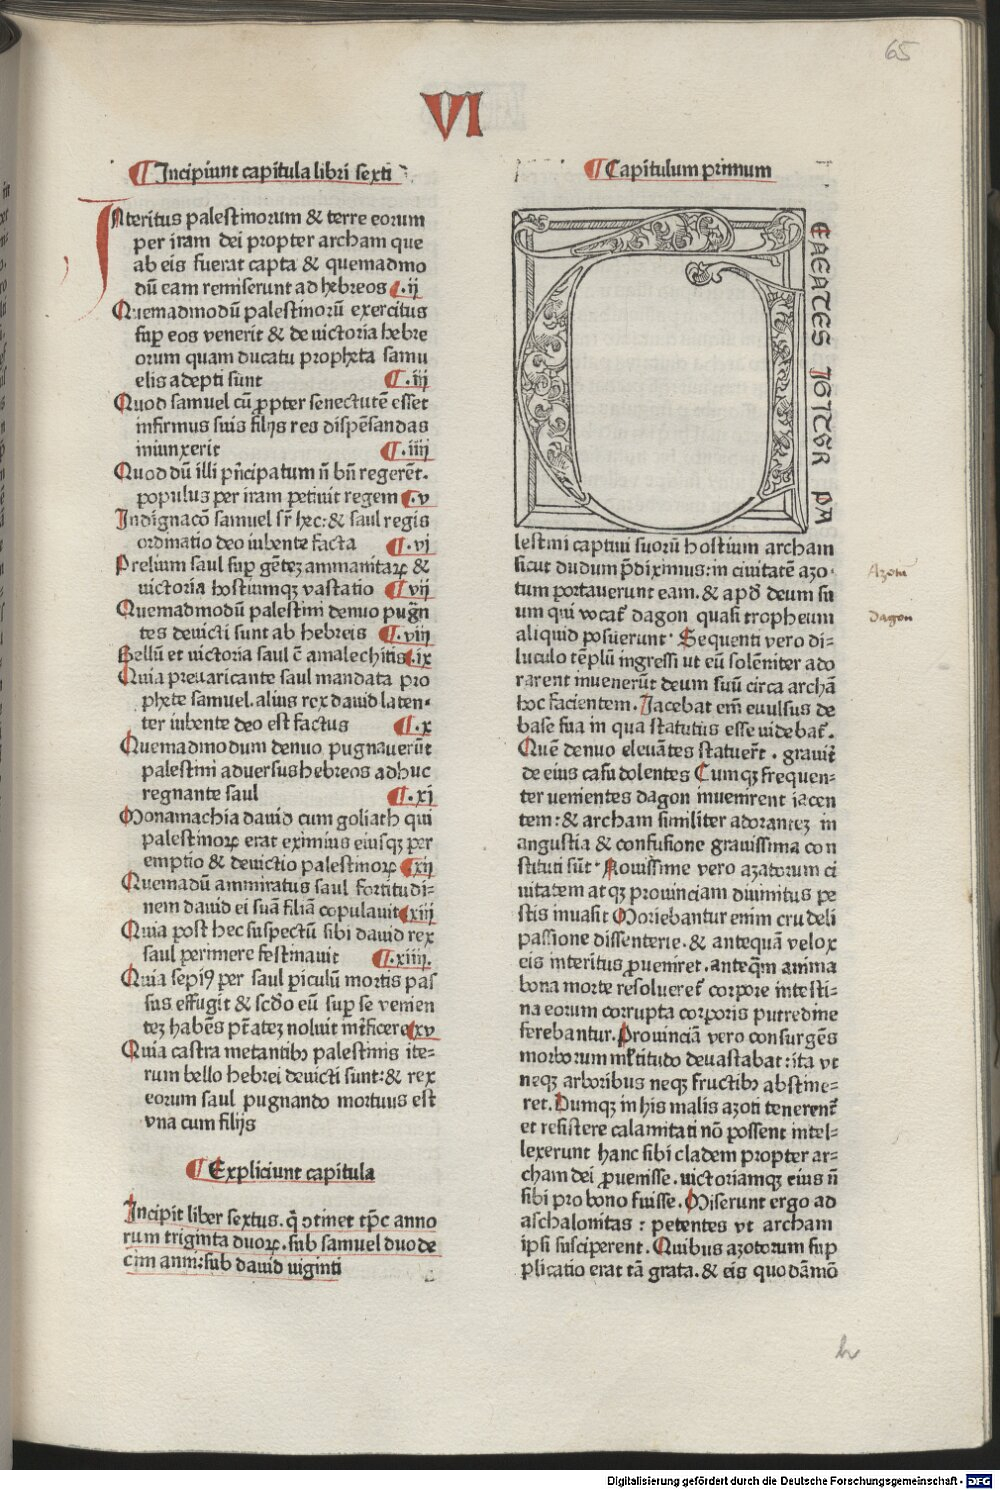 65
VI
¶ Incipiunt capitula libri sexti
Interitus palestinorum & terre eorum
per iram dei propter archam que
ab eis fuerat capta & quemadmo
dū eam remiserunt ad hebreos ¶.ii
Quemadmodū palestinorū exercitus
sup̄ eos venerit & de victoria hebre
orum quam ducatu propheta samu
elis adepti sunt ¶.iii
Quod samuel cū ꝓpter senectutē esset
infirmus suis filijs res dispēsandas
iniunxerit ¶.iiii
Quod dū illi pⁿcipatum n̄ bn̄ regerēt.
populus per iram petiuit regem ¶.v
Indignacō samuel sr̄ hec: & saul regis
ordinatio deo iubente facta ¶.vi
Prelium saul sup̄ gētez ammanitaꝝ &
victoria hostiumqꝫ vastatio ¶ vii
Quemadmodū palestini denuo pugn̄
tes deuicti sunt ab hebreis ¶.viii
Bellū et victoria saul ꝯ̄ amalechitis ¶.ix
Quia preuaricante saul mandata pro
phete samuel. alius rex dauid laten-
ter iubente deo est factus ¶.x
Quemadmodum denuo pugnauerūt
palestini aduersus hebreos adhuc
regnante saul ¶.xi
Monamachia dauid cum goliath qui
palestinoꝝ erat eximius eiusqꝫ per
emptio & deuictio palestinoꝝ ¶xii
Quemadū ammiratus saul fortitudi-
nem dauid ei suā filiā copulauit ¶xiii
Quia post hec suspectū sibi dauid rex
saul perimere festinauit ¶.xiiii.
Quia sepiꝰ per saul piculū mortis pas
sus effugit & scdo eū sup̄ se venien
tez habēs pt̄atez noluit int̄ficere ¶xv
Quia castra metantibꝫ palestinis ite-
rum bello hebrei deuicti sunt: & rex
eorum saul pugnando mortuus est
vna cum filijs
¶ Expliciunt capitula
Incipit liber sextus. q̄ ↄtinet tp̄c anno
rum triginta duoꝝ. sub samuel duode
cim anni: sub dauid uiginti
¶ Capitulum primum
CAEATES IGITVR PA
lestini captiui suorū hostium archam
sicut dudum p̄diximus: in ciuitatē azo-
tum portauerunt eam. & apđ deum su
um qui vocat᷑ dagon quasi tropheum
aliquid posuerunt. Sequenti vero di-
luculo tēplū ingressi ut eū solēniter ado
rarent inuenerūt deum suū circa archā
hoc facientem. Iacebat em̄ euulsus de
base sua in qua statutus esse uidebat᷑.
Quē denuo eleuātes statuer̄t. grauit᷑
de eius casu dolentes Cumqꝫ frequen-
ter uenientes dagon inuenirent iacen
tem: & archam similiter adorantez in
angustia & confusione grauissima con
stituti sūt. Nouissime vero azotorum ci
uitatem atqꝫ prouinciam diuinitus pe
stis inuasit Moriebantur enim crudeli
passione dissenterie. & antequā velox
eis interitus ꝓueniret. anteq̄m anima
bona morte resolueret᷑ corpore intesti-
na eorum corrupta corporis putredine
ferebantur. Prouinciā vero consurgēs
morborum ml̄titudo deuastabat: ita vt
neqꝫ arboribus neqꝫ fructibꝫ abstine-
ret. Dumqꝫ in his malis azoti tenerent᷑
et resistere calamitati nō possent intel-
lexerunt hanc sibi cladem propter ar-
cham dei ꝓuenisse. victoriamqꝫ eius n̄
sibi pro bono fuisse. Miserunt ergo ad
aschalonitas: petentes vt archam
ipsi susciperent. Quibus azotorum sup
plicatio erat tā grata. & eis quodāmō
Azotū
Dagon
h
Digitalisierung gefördert durch die Deutsche Forschungsgemeinschaft - DFG